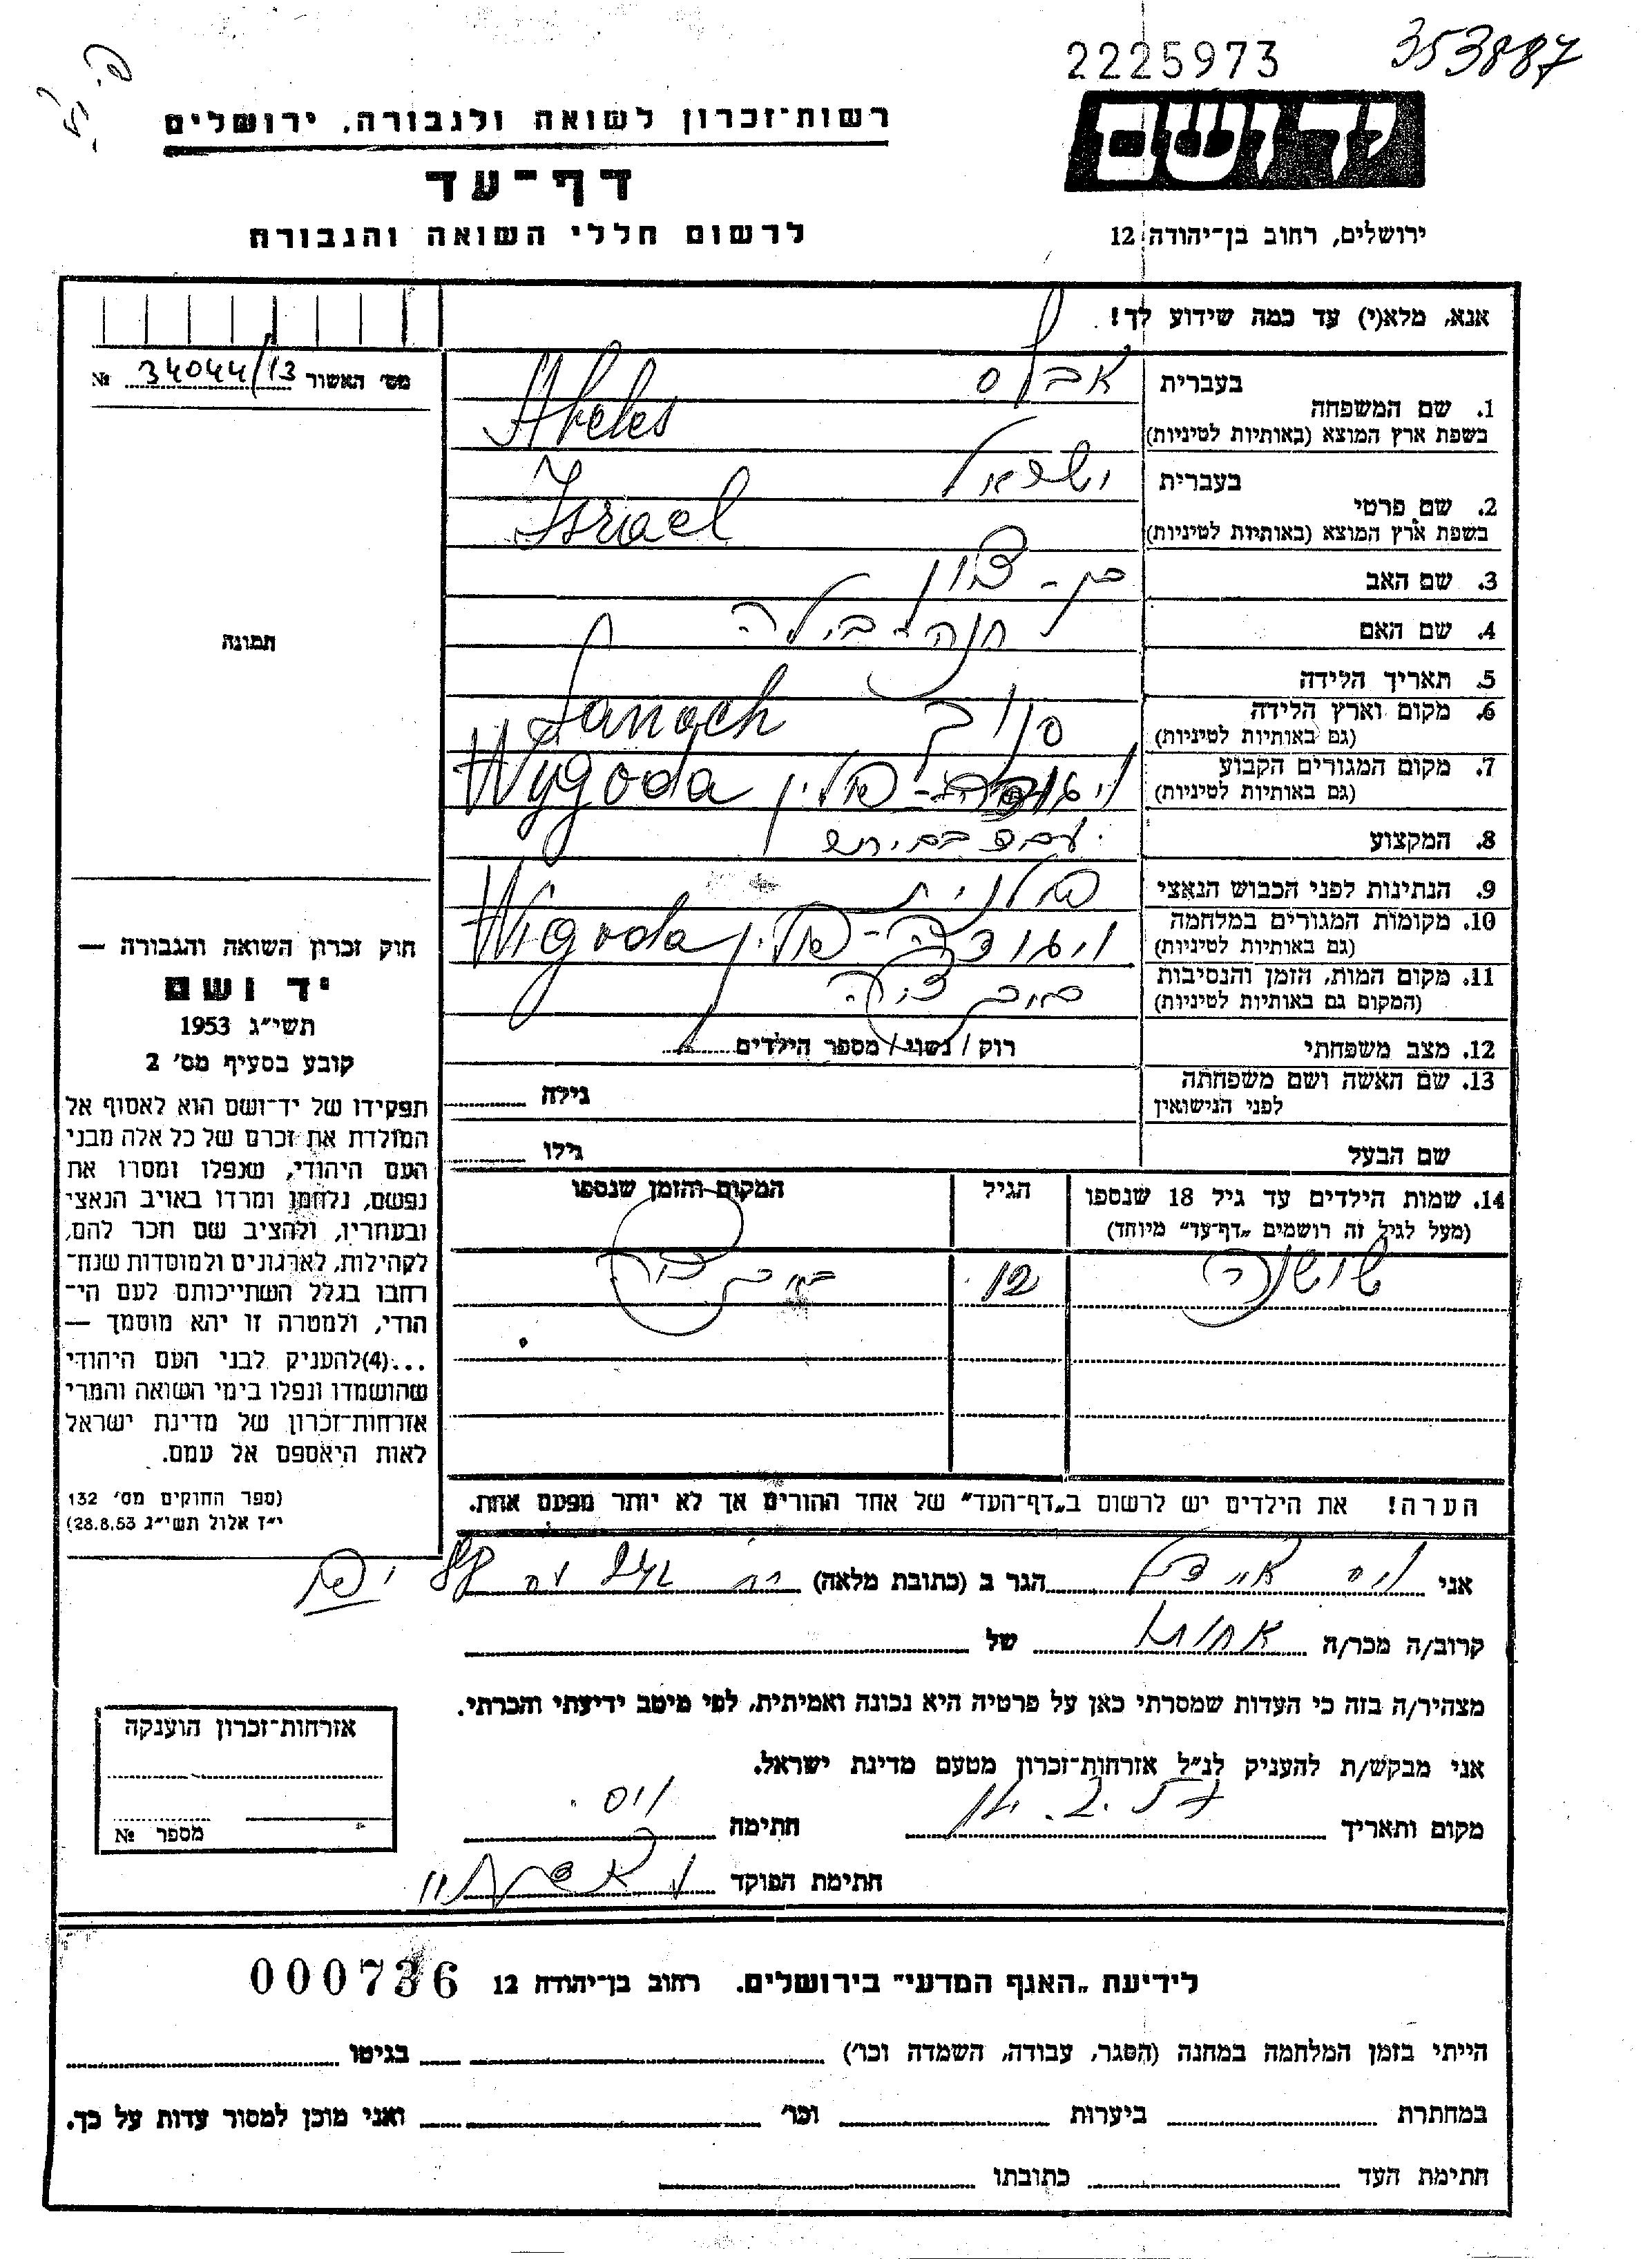 2225973
353887
יד ושם
רשות־זכרון לשואה ולגבורה, ירושלים
דף־עד
לרשום חללי השואה והגבורה
ירושלים, רחוב בן־יהודה 12
אנא, מלא(י) עד כמה שידוע לך!
מס׳ האשור 34044/13 №
1. שם המשפחה
בעברית אבלס
בשפת ארץ המוצא (באותיות לטיניות) Abeles
2. שם פרטי
בעברית ישראל
בשפת ארץ המוצא (באותיות לטיניות) Israel
3. שם האב בן-ציון
4. שם האם חנה בילה
5. תאריך הלידה
6. מקום וארץ הלידה סנוק Sanoch
(גם באותיות לטיניות)
7. מקום המגורים הקבוע ויגודה-פולין Wygoda
(גם באותיות לטיניות)
8. המקצוע
9. הנתינות לפני הכבוש הנאצי פולנית
10. מקומות המגורים במלחמה ויגודה-פולין Wigoda
(גם באותיות לטיניות)
11. מקום המות, הזמן והנסיבות
(המקום גם באותיות לטיניות)
12. מצב משפחתי רוק / נשוי / מספר הילדים
13. שם האשה ושם משפחתה
לפני הנישואין
גילה
שם הבעל גילו
14. שמות הילדים עד גיל 18 שנספו
(מעל לגיל זה רושמים „דף־עד״ מיוחד)
הגיל
המקום והזמן שנספו
שושנה 12
הערה! את הילדים יש לרשום ב„דף־העד״ של אחד ההורים אך לא יותר מפעם אחת.
תמונה
חוק זכרון השואה והגבורה —
יד ושם
תשי״ג 1953
קובע בסעיף מס׳ 2
תפקידו של יד־ושם הוא לאסוף אל
המולדת את זכרם של כל אלה מבני
העם היהודי, שנפלו ומסרו את
נפשם, נלחמו ומרדו באויב הנאצי
ובעוזריו, ולהציב שם וזכר להם,
לקהילות, לארגונים ולמוסדות שנח־
רחבו בגלל השתייכותם לעם הי־
הודי, ולמטרה זו יהא מוסמך —
...(4)להעניק לבני העם היהודי
שהושמדו ונפלו בימי השואה והמרי
אזרחות־זכרון של מדינת ישראל
לאות היאספם אל עמם.
(ספר החוקים מס׳ 132
י״ז אלול תשי״ג 28.8.53)
אני הגר ב (כתובת מלאה)
קרוב/ה מכר/ה של
מצהיר/ה בזה כי העדות שמסרתי כאן על פרטיה היא נכונה ואמיתית, לפי מיטב ידיעתי והכרתי.
אני מבקש/ת להעניק לנ״ל אזרחות־זכרון מטעם מדינת ישראל.
מקום ותאריך חתימה ויס
חתימת הפוקד
אזרחות־זכרון הוענקה
מספר №
לידיעת „האגף המדעי״ בירושלים. רחוב בן־יהודה 12 000736
הייתי בזמן המלחמה במחנה (הסגר, עבודה, השמדה וכו׳) בגיטו
במחתרת ביערות וכו׳ ואני מוכן למסור עדות על כך.
חתימת העד כתובתו